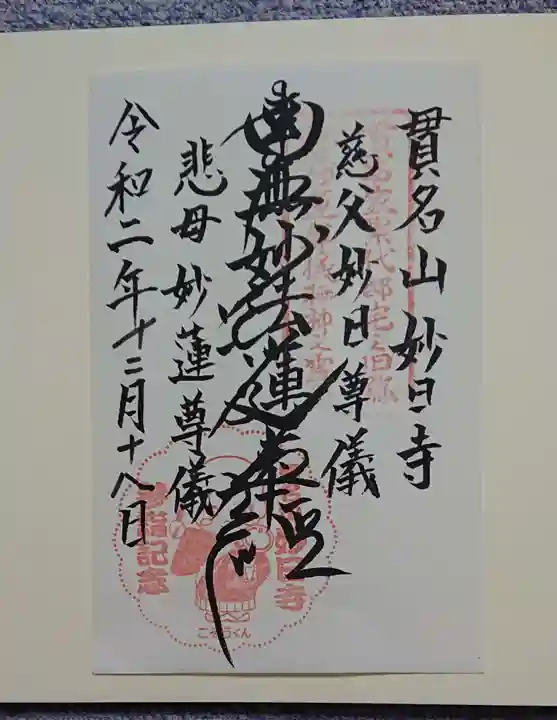 貫名山妙日寺
慈父妙日尊儀
南無妙法蓮華経
悲母妙蓮尊儀
令和二年十二月十八日
妙日寺
参詣記念
こぞうくん